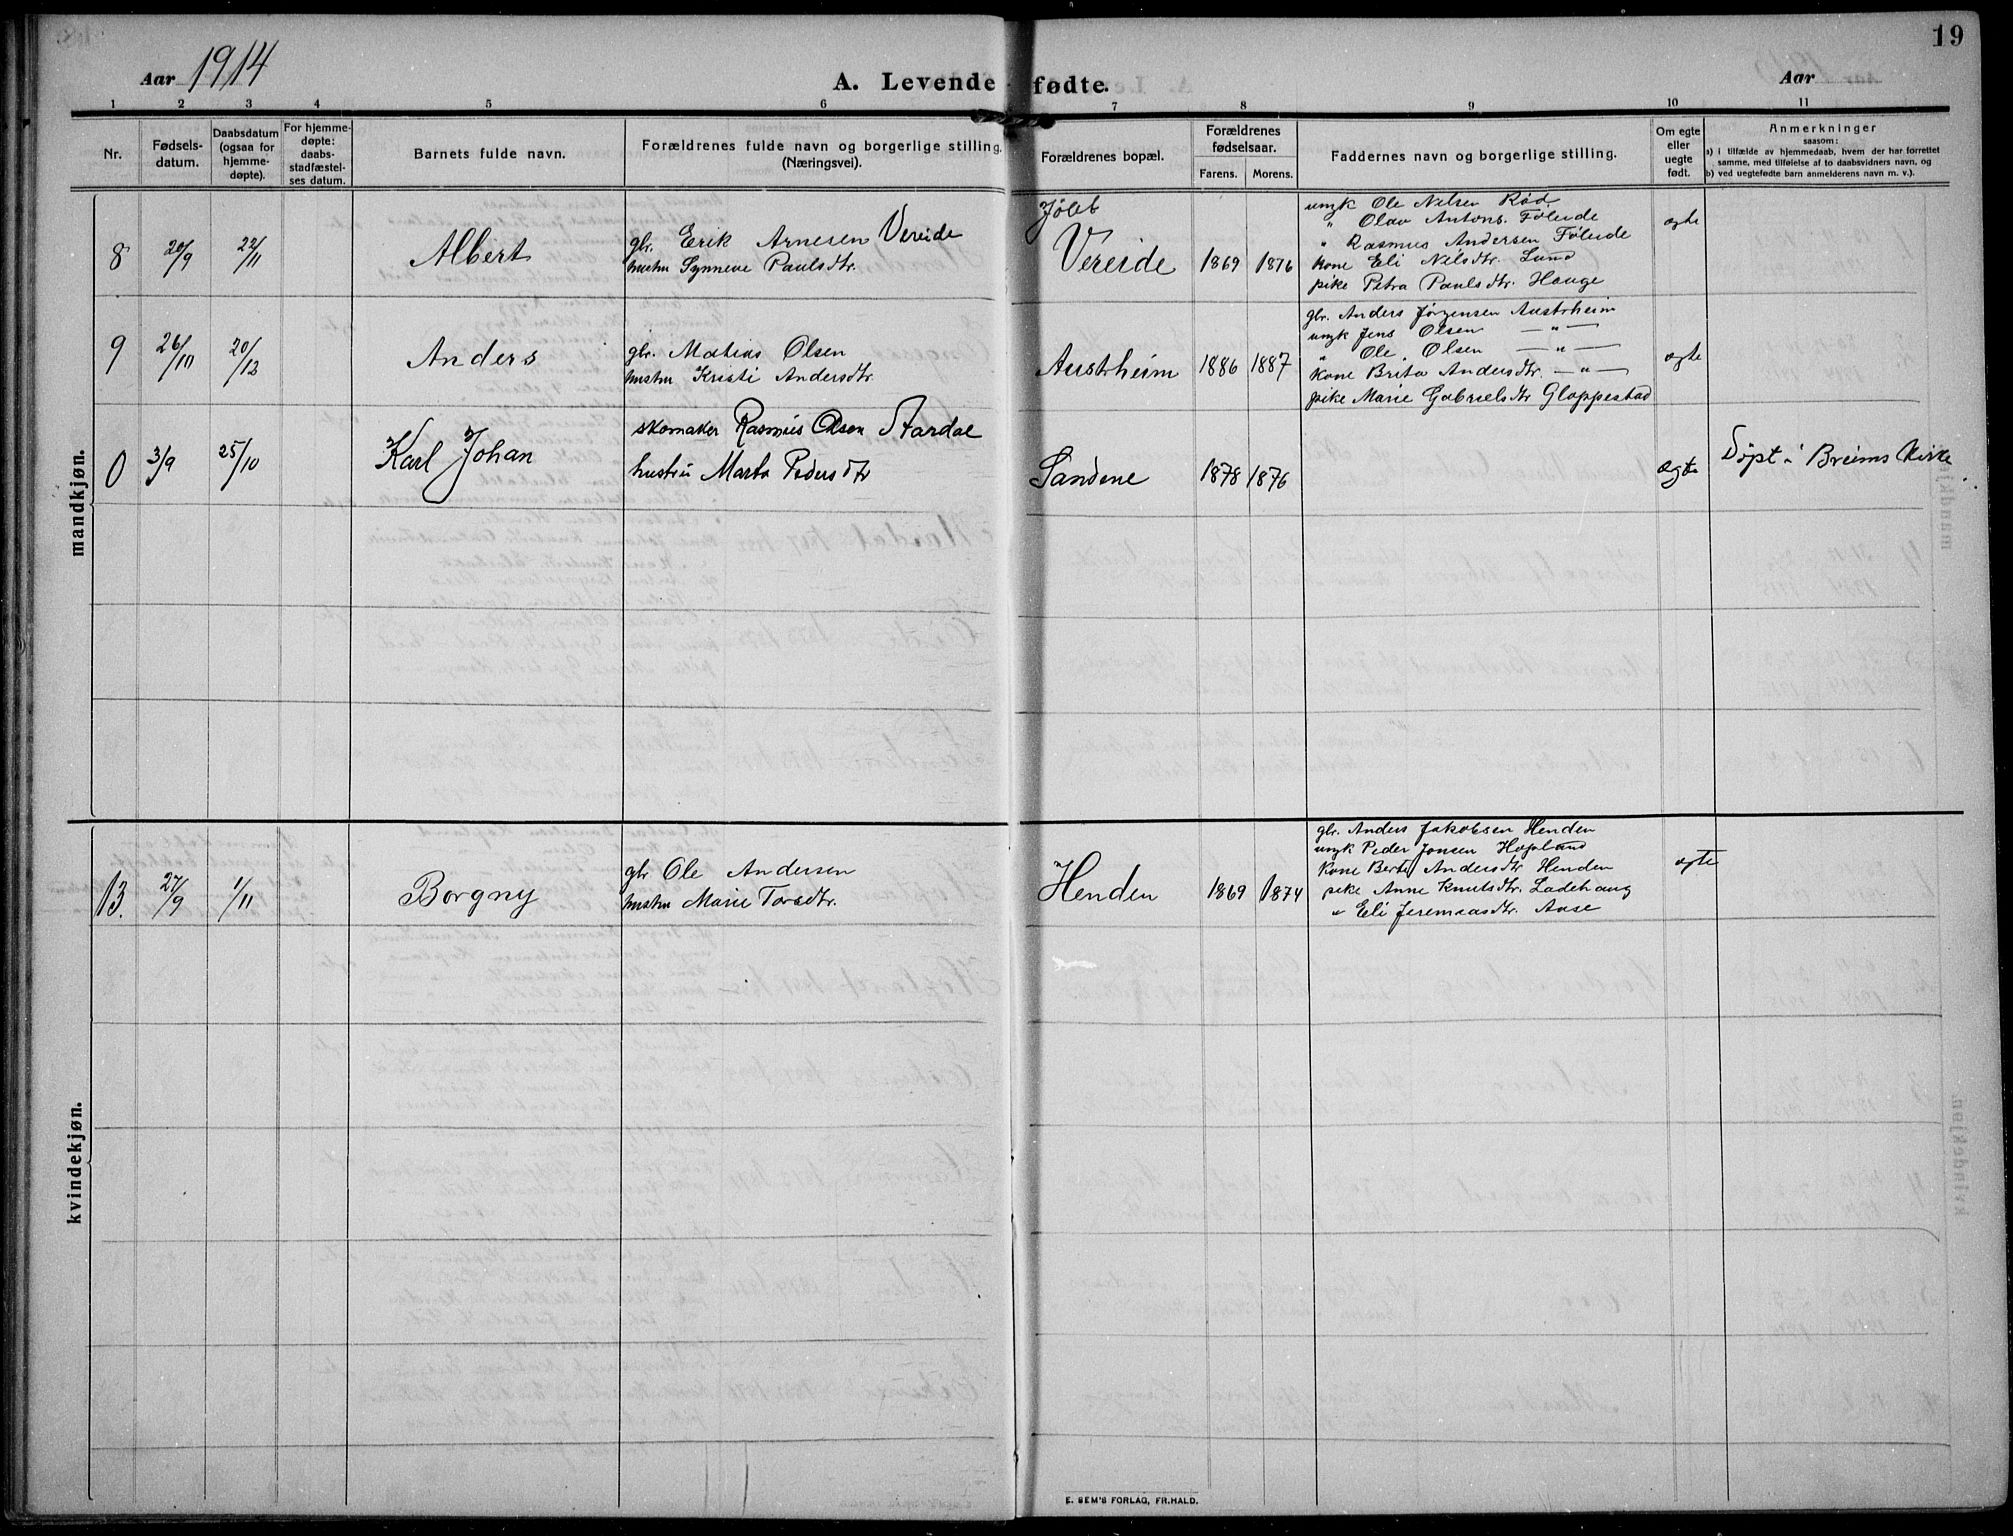 19
Aar 1914
A. Levende fødte.
Aar
1 2 3 4 5 6 7 8 9 10 11
Nr.
Fødsels-
datum.
Daabsdatum
(ogsaa for
hjemme-
døpte).
For hjemme-
døpte:
daabs-
stadfæstel-
ses datum.
Barnets fulde navn.
Forældrenes fulde navn og borgerlige stilling.
(Næringsvei).
Forældrenes bopæl.
Forældrenes
fødselsaar.
Farens. Morens.
Faddernes navn og borgerlige stilling.
Om egte
eller
uegte
født.
Anmerkninger
saasom:
a) i tilfælde av hjemmedaab, hvem der har forrettet
samme, med tilføielse av to daabsvidners navn, og
b) ved uegtefødte barn anmelderens navn m. v.).
mandkjøn.
8 20/9 22/11 Albert
gbr. Erik Arnesen Vereide
hustru Synneve Paulsdtr.
Vereide 1869 1876
ungk Ole Nilsen Rød.
" Olav Antons. Føleide
" Rasmus Andersen Føleide
kone Eli Nilsdtr. Lund
pike Petra Paulsdtr. Hauge
egte
9 26/10 20/12 Anders
gbr. Matias Olsen
hustru Kristi Andersdtr.
Austrheim 1886 1887
gbr. Anders Jørgensen Austrheim
ungk Jens Olsen — " —
" Ole Olsen — " —
kone Brita Andersdtr. — " —
pike Marie Gabrielsdtr Gloppestad
egte
0 3/9 25/10 Karl Johan
skomaker Rasmus Olsen Stardal
hustru Marta Pedersdtr
Sandene 1878 1876
egte
Døpt i Breims Kirke
kvindekjøn.
13. 27/9 1/11 Borgny
gbr Ole Andersen
hustru Marie Toresdtr.
Henden 1869 1874
gbr. Anders Jakobsen Henden
ungk Peder Jonsen Hopland
Kone Berte Andersdtr Henden
pike Anne Knutsdtr. Ladehaug
" Eli Jeremiasdtr. Aase
egte
E. SEM'S FORLAG, FR.HALD.